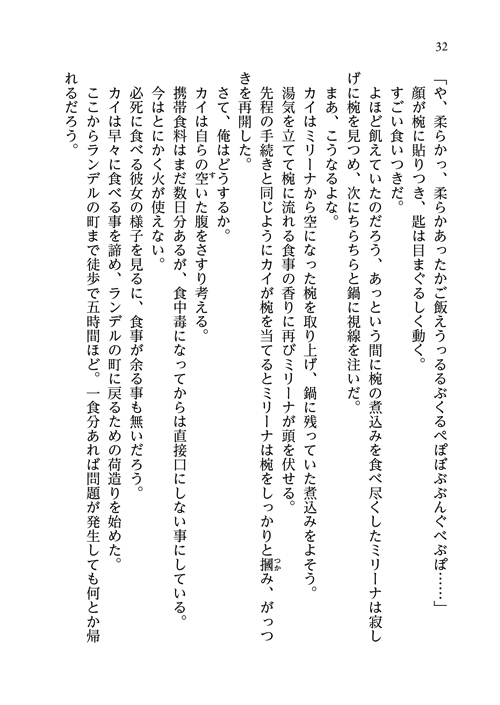 32
「や、柔らかっ、柔らかあったかご飯えうっるるぶくるぺぽぼぶぶんぐべぶぽ……」
顔が椀に貼りつき、匙は目まぐるしく動く。
すごい食いつきだ。
よほど飢えていたのだろう、あっという間に椀の煮込みを食べ尽くしたミリーナは寂し
げに椀を見つめ、次にちらちらと鍋に視線を注いだ。
まあ、こうなるよな。
カイはミリーナから空になった椀を取り上げ、鍋に残っていた煮込みをよそう。
湯気を立てて椀に流れる食事の香りに再びミリーナが頭を伏せる。
先程の手続きと同じようにカイが椀を当てるとミリーナは椀をしっかりと摑つかみ、がっつ
きを再開した。
さて、俺はどうするか。
カイは自らの空すいた腹をさすり考える。
携帯食料はまだ数日分あるが、食中毒になってからは直接口にしない事にしている。
今はとにかく火が使えない。
必死に食べる彼女の様子を見るに、食事が余る事も無いだろう。
カイは早々に食べる事を諦め、ランデルの町に戻るための荷造りを始めた。
ここからランデルの町まで徒歩で五時間ほど。一食分あれば問題が発生しても何とか帰
れるだろう。